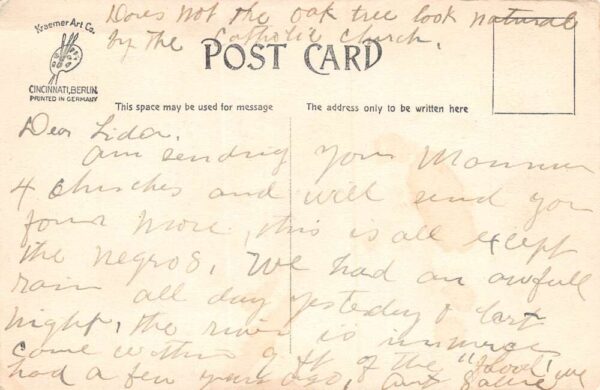 Does not the oak tree look natural
by the Catholic Church.
Kraemer Art Co.
CINCINNATI, BERLIN.
PRINTED IN GERMANY
POST CARD
This space may be used for message
The address only to be written here
Dear
am sending your
4 Churches and will send you
four more, this is all except
the negros, We had an awfull
rain all day yesteday & last
night, the river is
come within 9 ft of the "flood" we
had a few years ago,